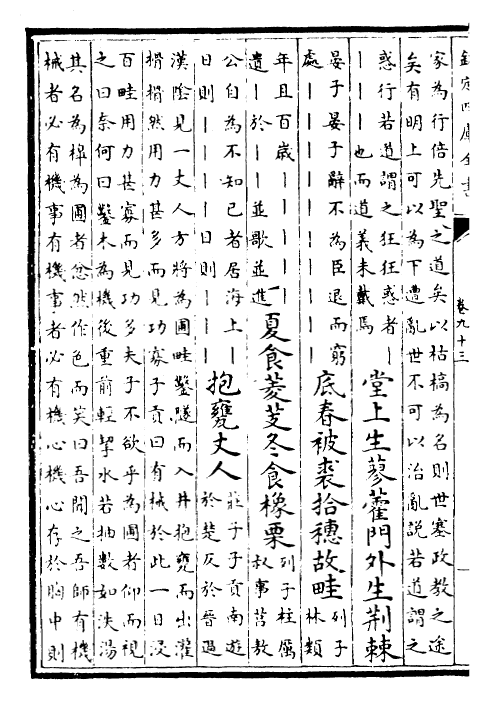 欽定四庫全書
卷九十三
家為行倍先聖之道矣以枯槁為名則世塞政教之途
矣有明上可以為下遭亂世不可以治亂說若道謂之
惑行若道謂之狂狂惑者｜
｜｜｜也而道義未戴焉
堂上生蓼藿門外生荆棘
晏子晏子辭不為臣退而窮
處｜｜｜｜｜｜｜｜｜｜
底春被裘拾穗故畦
列子
林類
年且百歲｜｜｜｜｜｜
遺｜｜於｜｜並歌並進
夏食菱芰冬食橡栗
列子柱厲
叔事莒敖
公自為不知己者居海上｜
日則｜｜｜｜日則｜｜｜
抱甕丈人
莊子子貢南遊
於楚反於晉過
漢陰見一丈人方將為圃畦鑿隧而入井抱甕而出灌
搰搰然用力甚多而見功寡子貢曰有械於此一日浸
百畦用力甚寡而見功多夫子不欲乎為圃者仰而視
之曰奈何曰鑿木為機後重前輕挈水若抽數如泆湯
其名為槔為圃者忿然作色而笑曰吾聞之吾師有機
械者必有機事有機事者必有機心機心存於胸中則